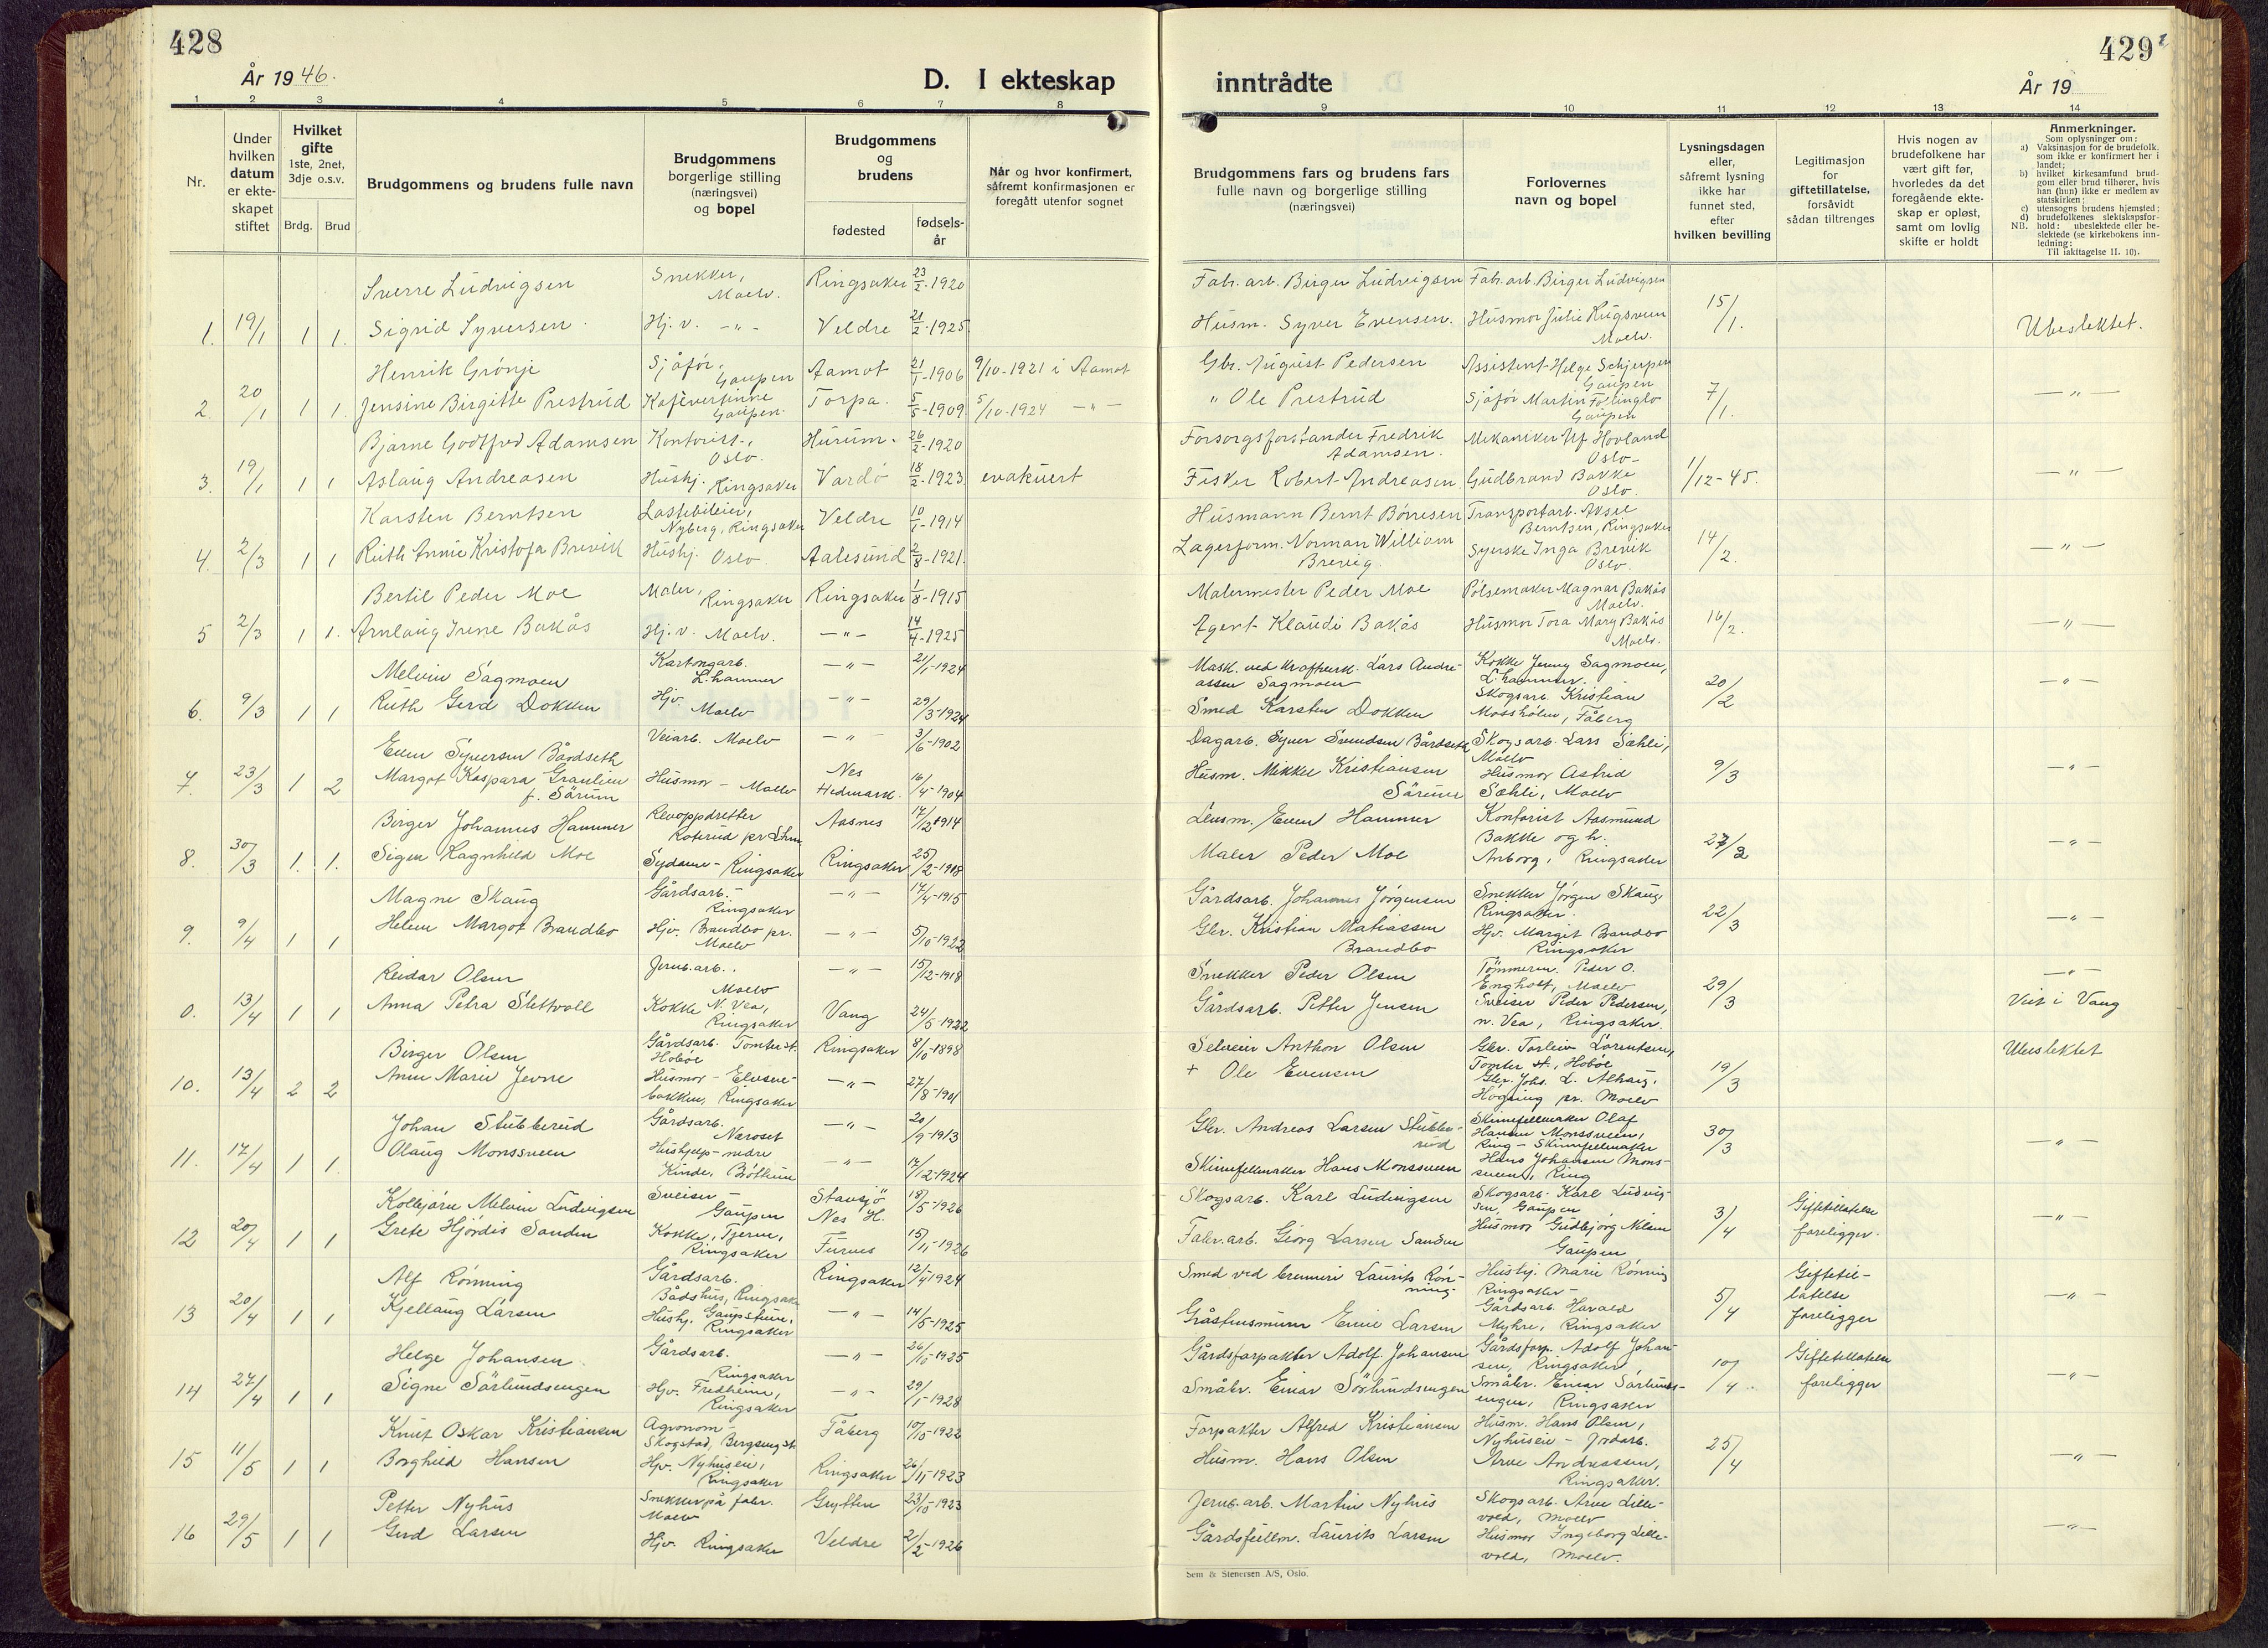 428
År 1946.
D. I ekteskap
inntrådte
429
År 19
1 2 3 4 5 6 7 8 9 10 11 12 13 14
Nr.
Under hvilken datum er ekteskapet stiftet
Hvilket gifte 1ste, 2net, 3dje o.s.v.
Brdg. Brud
Brudgommens og brudens fulle navn
Brudgommens borgerlige stilling (næringsvei) og bopel
Brudgommens og brudens
fødested
fødsels-år
Når og hvor konfirmert, såfremt konfirmasjonen er foregått utenfor sognet
Brudgommens fars og brudens fars fulle navn og borgerlige stilling (næringsvei)
Forlovernes navn og bopel
Lysningsdagen eller, såfremt lysning ikke har funnet sted, efter hvilken bevilling
Legitimasjon for giftetillatelse, forsåvidt sådan tiltrenges
Hvis nogen av brudefolkene har vært gift før, hvorledes da det foregående ekteskap er opløst, samt om lovlig skifte er holdt
Anmerkninger.
Som oplysninger om:
a) Vaksinasjon for de brudefolk, som ikke er konfirmert her i landet;
b) hvilket kirkesamfund brudgom eller brud tilhører, hvis han (hun) ikke er medlem av statskirken;
c) utensogns brudens hjemsted;
d) brudefolkenes slektskapsforhold: ubeslektede eller beslektede (se kirkebokens innledning;
NB.
Til iakttagelse II. 10).
Sverre Ludvigsen Snekker, Moelv. Ringsaker 23/2-1920 Fabr. arb. Birger Ludvigsen Fabr. arb. Birger Ludvigsen
1. 19/1 1 1. Sigrid Syversen Hj. v. -"- Veldre 21/2-1925 Husm. Syver Evensen. Husmor Julie Rugsveen Moelv. 15/1. Ubeslektet.
Henrik Grønje Sjåfør, Gaupen Aamot 21/1-1906 9/10-1921 i Aamot Gbr. August Pedersen Assistent Helge Schjerpen Gaupen
2 20/1 1 1. Jensine Birgitte Prestrud Kafévertinne Gaupen. Torpa. 5/5-1909 5/10-1924 -"- " Ole Prestrud Sjåfør Martin Følinglo Gaupen 7/1. -"-
Bjarne Godtfred Adamsen Kontorist, Oslo. Hurum. 26/2-1920 Forsorgsforstander Fredrik Adamsen. Mekaniker Ulf Hovland Oslo-
3. 19/1 1 1 Aslaug Andreasen Hushj. Ringsaker Vardø 18/2-1923 evakuert Fisker Robert Andreasen Gudbrand Bakke Oslo. 1/12-45. -"-
Karsten Berntsen Lastebileier, Nyberg, Ringsaker Veldre 10/1-1914 Husmann Bernt Børresen Transportarb. Aksel Berntsen, Ringsaker
4. 2/3 1 1 Ruth Annie Kristofa Brevik Hushj. Oslo Aalesund 2/8-1921. Lagerform. Norman William Brevig. Syerske Inga Brevik Oslo. 14/2. -"-
Bertil Peder Moe Maler, Ringsaker Ringsaker 1/8-1915 Malermester Peder Moe Pølsemaker Magnar Bakås Moelv.
5 2/3 1 1. Arnlaug Irene Bakås Hj. v. Moelv. -"- 14/4-1925 Agent Klaudi Bakås Husmor Tora Marg Bakås Moelv. 16/2. -"-
Melvin Sagmoen Kartongarb. L.hammer -"- 2/1-1924 Mask. ved kraftverk. Lars Andreassen Sagmoen Kokke Jenny Sagmoen, L.hammer.
6. 9/3 1 1 Ruth Gerd Dokken Hjv. Moelv -"- 29/3-1924 Smed Karsten Dokken Skogsarb. Kristian Mosshølen, Fåberg 20/2 -"-
Even Syversen Bårdseth Veiarb. Moelv -"- 3/6-1902 Dagarb. Syver Svendsen Bårdseth Skogsarb. Lars Sæhli, Moelv
7. 23/3 1 2 Margot Kaspara Granlien f. Sörum Husmor - Moelv Nes Hedmark. 16/4-1904 Husm. Mikkel Kristiansen Sörum Husmor Astrid Sæhli, Moelv 9/3 -"-
Birger Johannes Hammer Revoppdretter Roterud pr Lhm Aasnes 17/12-1914 Lensm. Even Hammer Kontorist Aasmund Bakke og h.
8. 30/3 1. 1. Signe Ragnhild Moe Sydame - Ringsaker Ringsaker 25/2-1918 Maler Peder Moe Anborg, Ringsaker 27/2 -"-
Magne Skaug Gårdsarb. - Ringsaker -"- 17/4-1915 Gårdsarb. Johannes Jörgensen Snekker Jörgen Skaug Ringsaker.
9. 9/4 1 1 Helene Margot Brandbo Hjv. Brandbo pr. Moelv -"- 5/10-1922 Gbr. Kristian Matiassen Brandbo Hjv. Margit Brandbo Ringsaker 22/3 -"-
Reidar Olsen Jernb.arb., Moelv -"- 15/2-1918 Snekker Peder Olsen Tömmerm. Peder O. Engholt, Moelv -"-
0. 13/4 1 1 Anna Petra Slettvoll Kokke N. Vea, Ringsaker Vang 24/5-1922 Gårdsarb. Petter Jensen Sveiser Peder Pedersen, n. Vea, Ringsaker. 29/3 Viet i Vang
Birger Olsen Gårdsarb. Tomter st. Hobøe Ringsaker 8/10-1898 Selveier Anthon Olsen Gbr. Torleiv Lörentsen, Tomter st., Hobøe Ubeslektet
10. 13/4 2 2 Anne Marie Jevne Husmor - Elvesve-bakken, Ringsaker -"- 27/8-1901 + Ole Evensen Gbr. Johs. L. Alhaug, Högning pr. Moelv 19/3
Johan Stubberud Gårdsarb. Næroset -"- 20/9-1913 Gbr. Andreas Larsen Stubberud Skinnfellmaker Olaf Hansen Monssveen, Ring - Skinnfellmaker
11. 17/4 1 1. Olaug Monssveen Hushjelp - nedre Kinde, Brøttum -"- 17/12-1924 Skinnfellmaker Hans Monssveen Hans Johansen Monssveen, Ring 30/3 -"-
Kolbjørn Melvin Ludvigsen Sveiser - Gaupen Stavsjö Nes H. 18/5-1926 Skogsarb. Karl Ludvigsen Skogsarb. Karl Ludvigsen, Gaupen
12 20/4 1 1 Grete Hjördis Sanden Kokke, Tjerne, Ringsaker Furnes 15/11-1926 Fabr.arb. Georg Larsen Sanden Husmor Gudbjörg Nilsen Gaupen 3/4 Giftetillatelse foreligger. -"-
Alf Rönning Gårdsarb. Bådshus, Ringsaker Ringsaker 12/4-1924 Smed ved brenneri Laurits Rönning Hushj. Marie Rönning Ringsaker -
13 20/4 1 1 Kjellaug Larsen Hushj. Gaupstuen, Ringsaker -"- 14/5-1925 Gråsteinsmurer Einar Larsen Gårdsarb. Harald Myhre, Ringsaker 5/4 Giftetil-låtelse foreligger -"-
Helge Johansen Gårdsarb. Ringsaker -"- 26/10-1925 Gårdsforpakter Adolf Johansen Gårdsforp. Adolf Johansen, Ringsaker
14 27/4 1 1 Signe Sörlundsengen Hjv. Fredheim, Ringsaker -"- 29/1-1928 Småbr. Einar Sörlundsengen Småbr. Einar Sörlundsengen, Ringsaker 10/4. Giftetillatelse foreligger -"-
Knut Oskar Kristiansen Agronom - Skogstad, Bergseng st. Fåberg 10/10-1922 Forpakter Alfred Kristiansen Husm. Hans Olsen, Nyhuseie - Jordarb.
15 11/5 1 1 Borghild Hansen Hjv. Nyhuseie, Ringsaker Ringsaker 26/11-1923 Husm. Hans Olsen Arve Andreassen, Ringsaker. 25/4 -"-
Petter Nyhus Snekker på fabr. Moelv Grytten 23/10-1923 Jernb.arb. Martin Nyhus Skogsarb. Arve Lillevold, Moelv
16 29/5 1 1 Gerd Larsen Hjv. Ringsaker Veldre 2/2-1926 Gårdsfullm. Laurits Larsen Husmor Ingeborg Lillevold, Moelv. -"-
Sem & Stenersen A/S, Oslo.